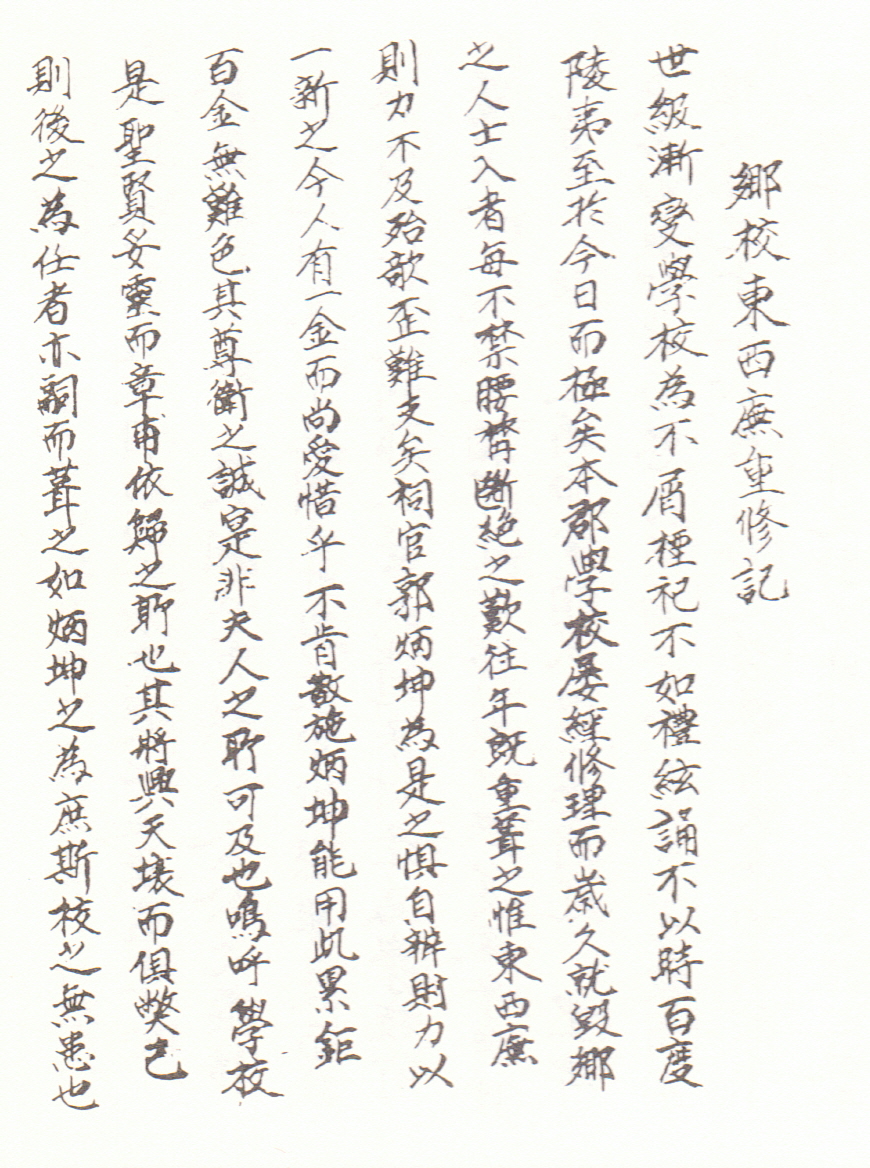 鄉校東西廡重修記
世級漸變學校為不屑禋祀不如禮絃誦不以時百度
陵夷至於今日而極矣本郡學校屡經修理而歲久就毀鄉
之人士入者每不禁腰膂斷絶之歎往年既重葺之惟東西廡
則力不及殆欹歪難支矣祠官郭炳坤為是之惧自辦財力以
一新之今人有一金而尚愛惜乎不肯散施炳坤能用此累鉅
百金無難色其尊衛之誠寔非夫人之所可及也嗚呼學校
是聖賢妥靈而章甫依歸之所也其將與天壤而俱弊已
則後之為任者亦嗣而葺之如炳坤之為庶斯校之無患也